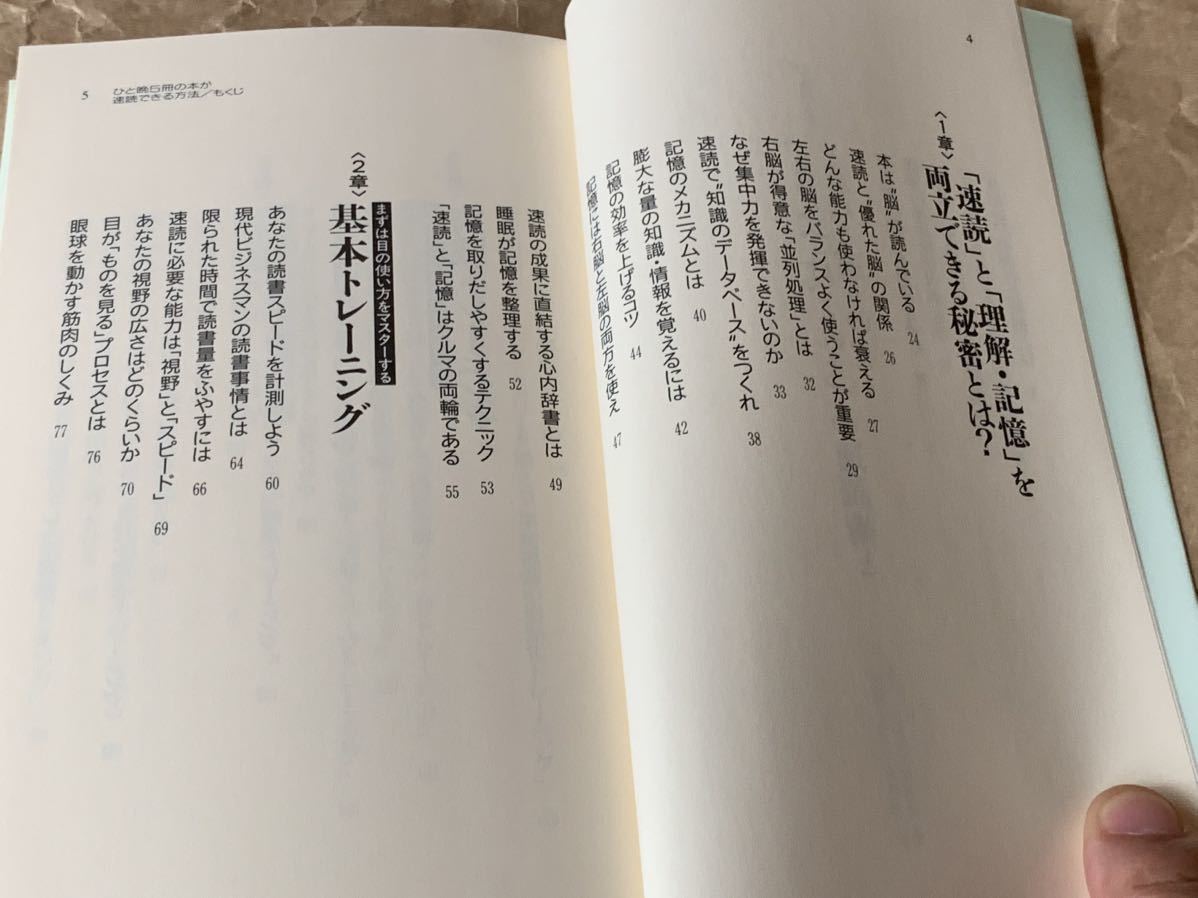 4
〈1章〉
「速読」と「理解・記憶」を
両立できる秘密とは?
本は“脳”が読んでいる 24
速読と“優れた脳”の関係 26
どんな能力も使わなければ衰える 27
左右の脳をバランスよく使うことが重要 29
右脳が得意な「並列処理」とは 32
なぜ集中力を発揮できないのか 33
速読で“知識のデータベース”をつくれ 38
記憶のメカニズムとは 40
膨大な量の知識・情報を覚えるには 42
記憶の効率を上げるコツ 44
記憶には右脳と左脳の両方を使え 47
5
ひと晩5冊の本が
速読できる方法/もくじ
速読の成果に直結する心内辞書とは 49
睡眠が記憶を整理する 52
記憶を取りだしやすくするテクニック 53
「速読」と「記憶」はクルマの両輪である 55
〈2章〉
まずは目の使い方をマスターする
基本トレーニング
あなたの読書スピードを計測しよう 60
現代ビジネスマンの読書事情とは 64
限られた時間で読書量をふやすには 66
速読に必要な能力は「視野」と「スピード」 69
あなたの視野の広さはどのくらいか 70
目が「ものを見る」プロセスとは 76
眼球を動かす筋肉のしくみ 77